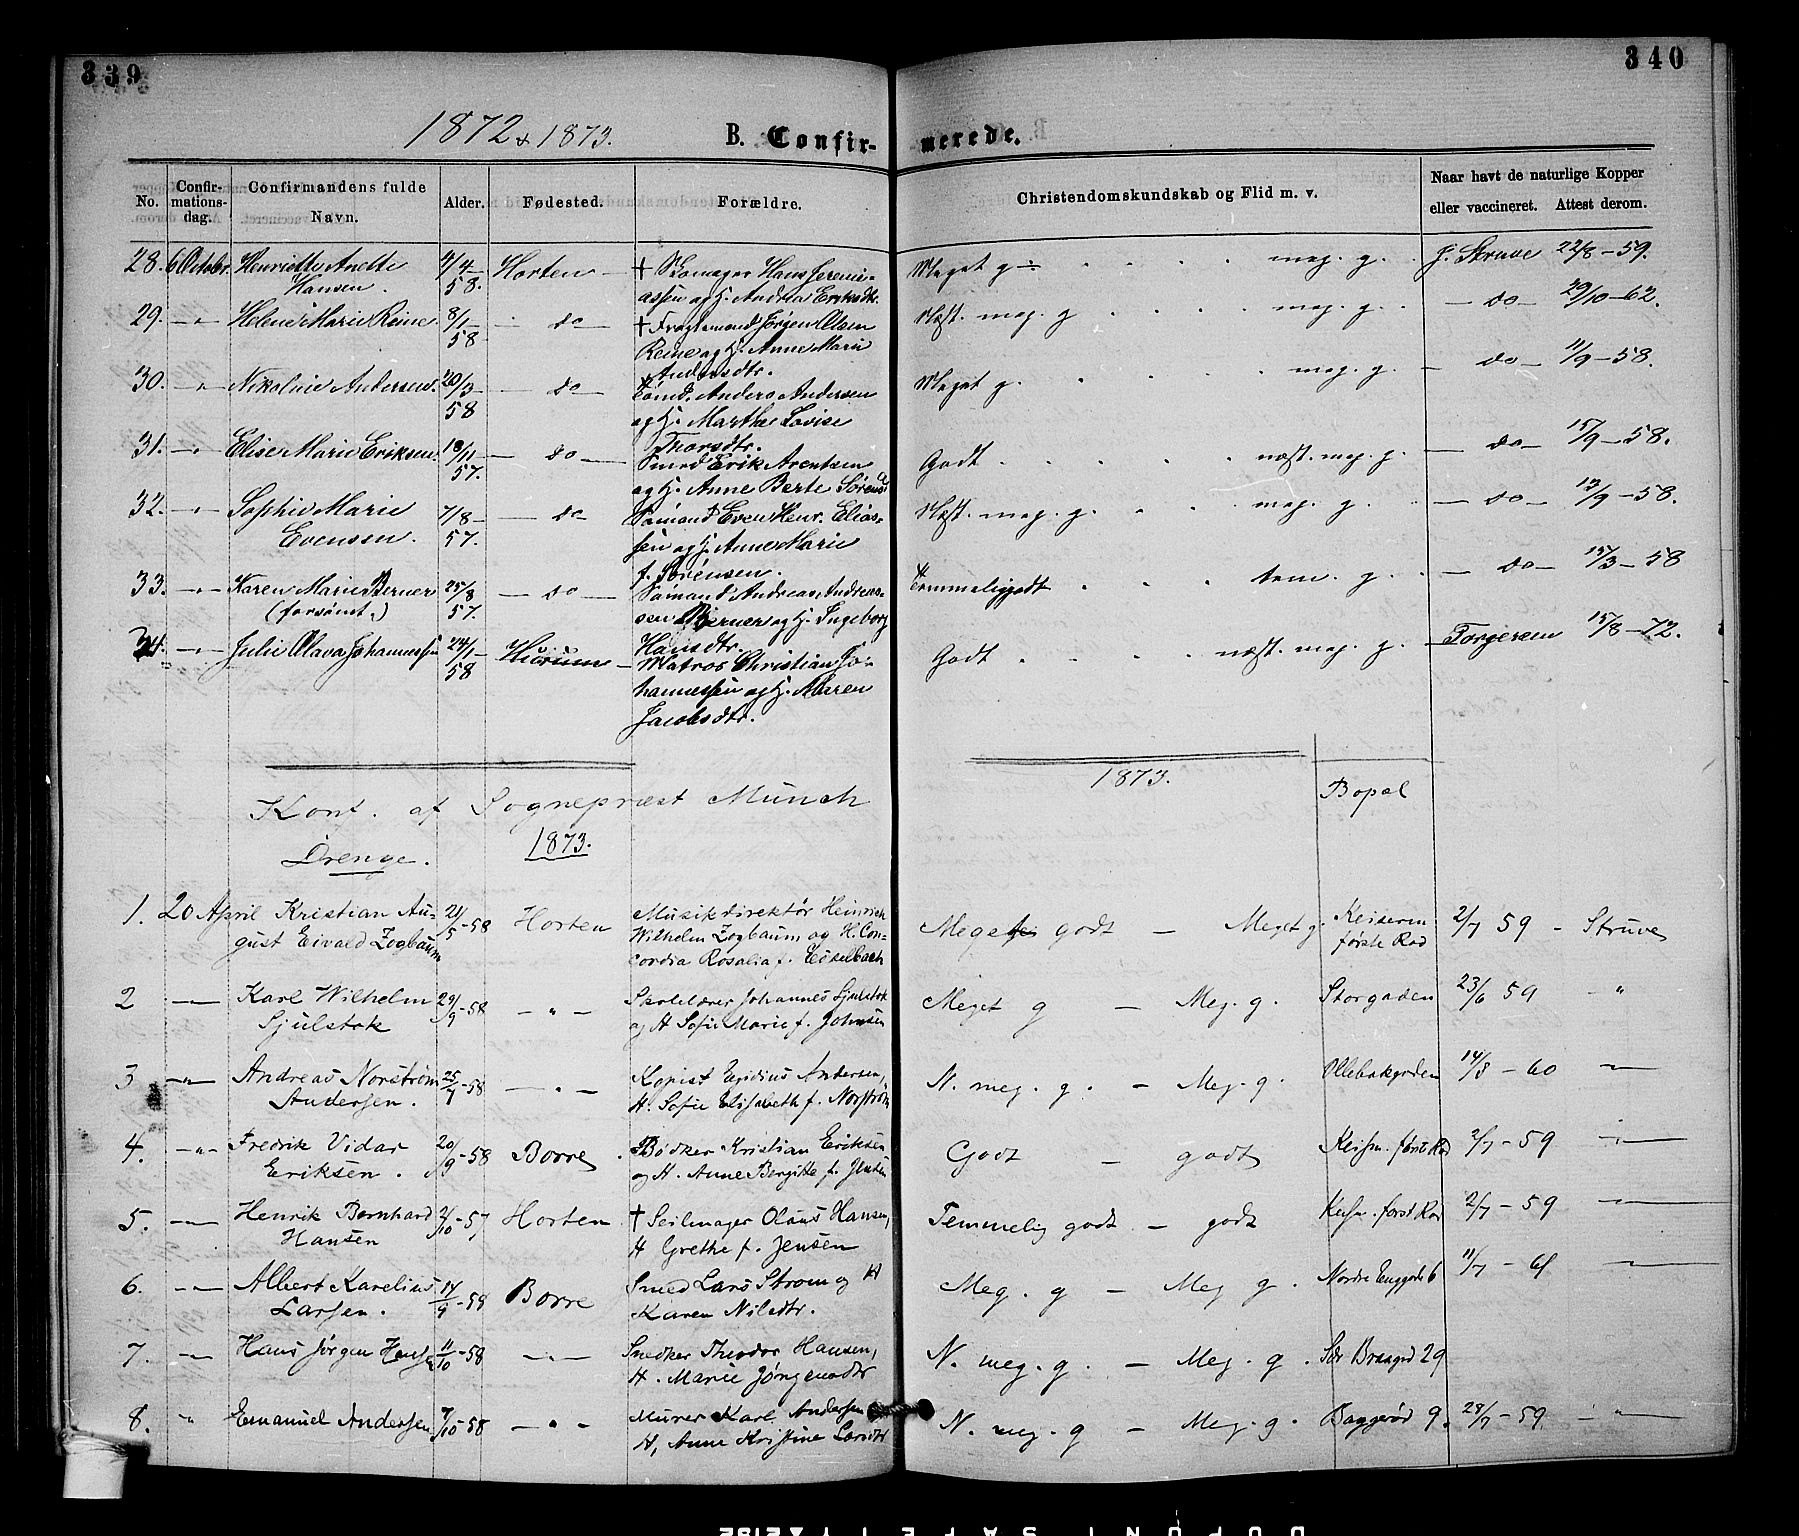 339
340
1872 & 1873.
B. Confir-
merede.
No.
Confir-
mations-
dag.
Confirmandens fulde
Navn.
Alder.
Fødested.
Forældre.
Christendomskundskab og Flid m. v.
Naar havt de naturlige Kopper
eller vaccineret. Attest derom.
28. 6 Octobr. Henriette Anette 4/4- Horten - † Skomager Hans Jeremi- Meget g. meg. g. J. Struve 22/8-59.
Hansen. 58. assen og H. Andrea Eriksdtr.
29. -"- Helene Marie Reine 8/1- - do - † Fragtemand Jørgen Olsen Næst. meg. g meg. g. - do - 29/10-62.
58 Reine og H. Anne Marie
Andersdtr.
30. " Nikoline Andersen. 20/3- - do - Tømd. Anders Andersen Meget g. meg. g. - do - 11/9-58.
58 og H. Marthe Lovise
Thorsdtr.
31. -"- Elise Marie Eriksen. 18/11- - do - Smed Erik Arentsen Godt næst. meg. g. - do - 15/9-58.
57. og H. Anne Berte Sørensd.
32. -"- Sophie Marie 7/8- - do - Sømand Even Henr. Elias- Næst. meg. g. meg. g. - do - 13/9-58.
Evensen. 57. sen og H. Anne Marie
f. Sørensen.
33. -"- Karen Marie Berner 25/8 - do - Sømand Andreas Andreas- Temmelig godt tem. g. - do - 15/3-58
(forsømt.) 57. sen Berner og H. Ingeborg
Hansdtr.
34. -"- Julie Olava Johannessen 24/1- Hurum - Matros Christian Jo- Godt næst. meg. g. Torgersen 15/8-72.
58 hannessen og H. Maren
Jacobsdtr.
Konf. af Sognepræst Münch
1873.
Bopæl
1873.
Drenge.
1. 20 April Kristian Au- 21/5-58 Horten Musikdirektør Heinrich Meget godt - Meget g. Keiseren 2/7 59 - Struve
gust Eivald Zogbaum Wilhelm Zogbaum og H. Con- første Rad
cordia Rosalia f. Esselbach
2 -"- Karl Wilhelm 29/9-58 - " - Skolelærer Johannes Sjulstok Meget g - Meg. g. Storgaden 23/6 59 - "
Sjulstok og H Sofie Marie f. Johnsen
3 -"- Andreas Norström 25/7-58 - " - Kopist Egidius Andersen, N. meg. g. - Meg. g. Vollebakgaden 14/8-60 -"-
Andersen. H. Sofie Elisabeth f. Norström
4. -"- Fredrik Vidar 20/9-58 Borre. Bødker Kristian Eriksen Godt - godt Keisn. først Rad 2/7-59 -"-
Eriksen. og H. Anne Bergitte f. Jensen
5. -"- Henrik Bernhard 2/10-57 Horten † Seilmager Olaus Hansen, Temmelig godt - godt Keisn. først Rad 2/7-59 -"-
Hansen H Grethe f. Jensen
6. -"- Albert Karelius 14/9-58 Borre Smed Lars Strom og H Meg. g - Meg g. Nordre Enggade 6 11/7-61 -"-
Larsen. Karen Nilsdtr.
7. -"- Hans Jørgen Hansen 11/10-58 -"- Snedker Theodor Hansen, N. meg. g. - Meg. g. Sdr Braagd 29
H. Marie Jørgensdtr
8. " Emanuel Andersen 7/10-58 - " - Murer Karl Andersen N. meg. g - Meg. g. Baggerød 9. 28/7-59 - "
H, Anne Kristine Larsdtr